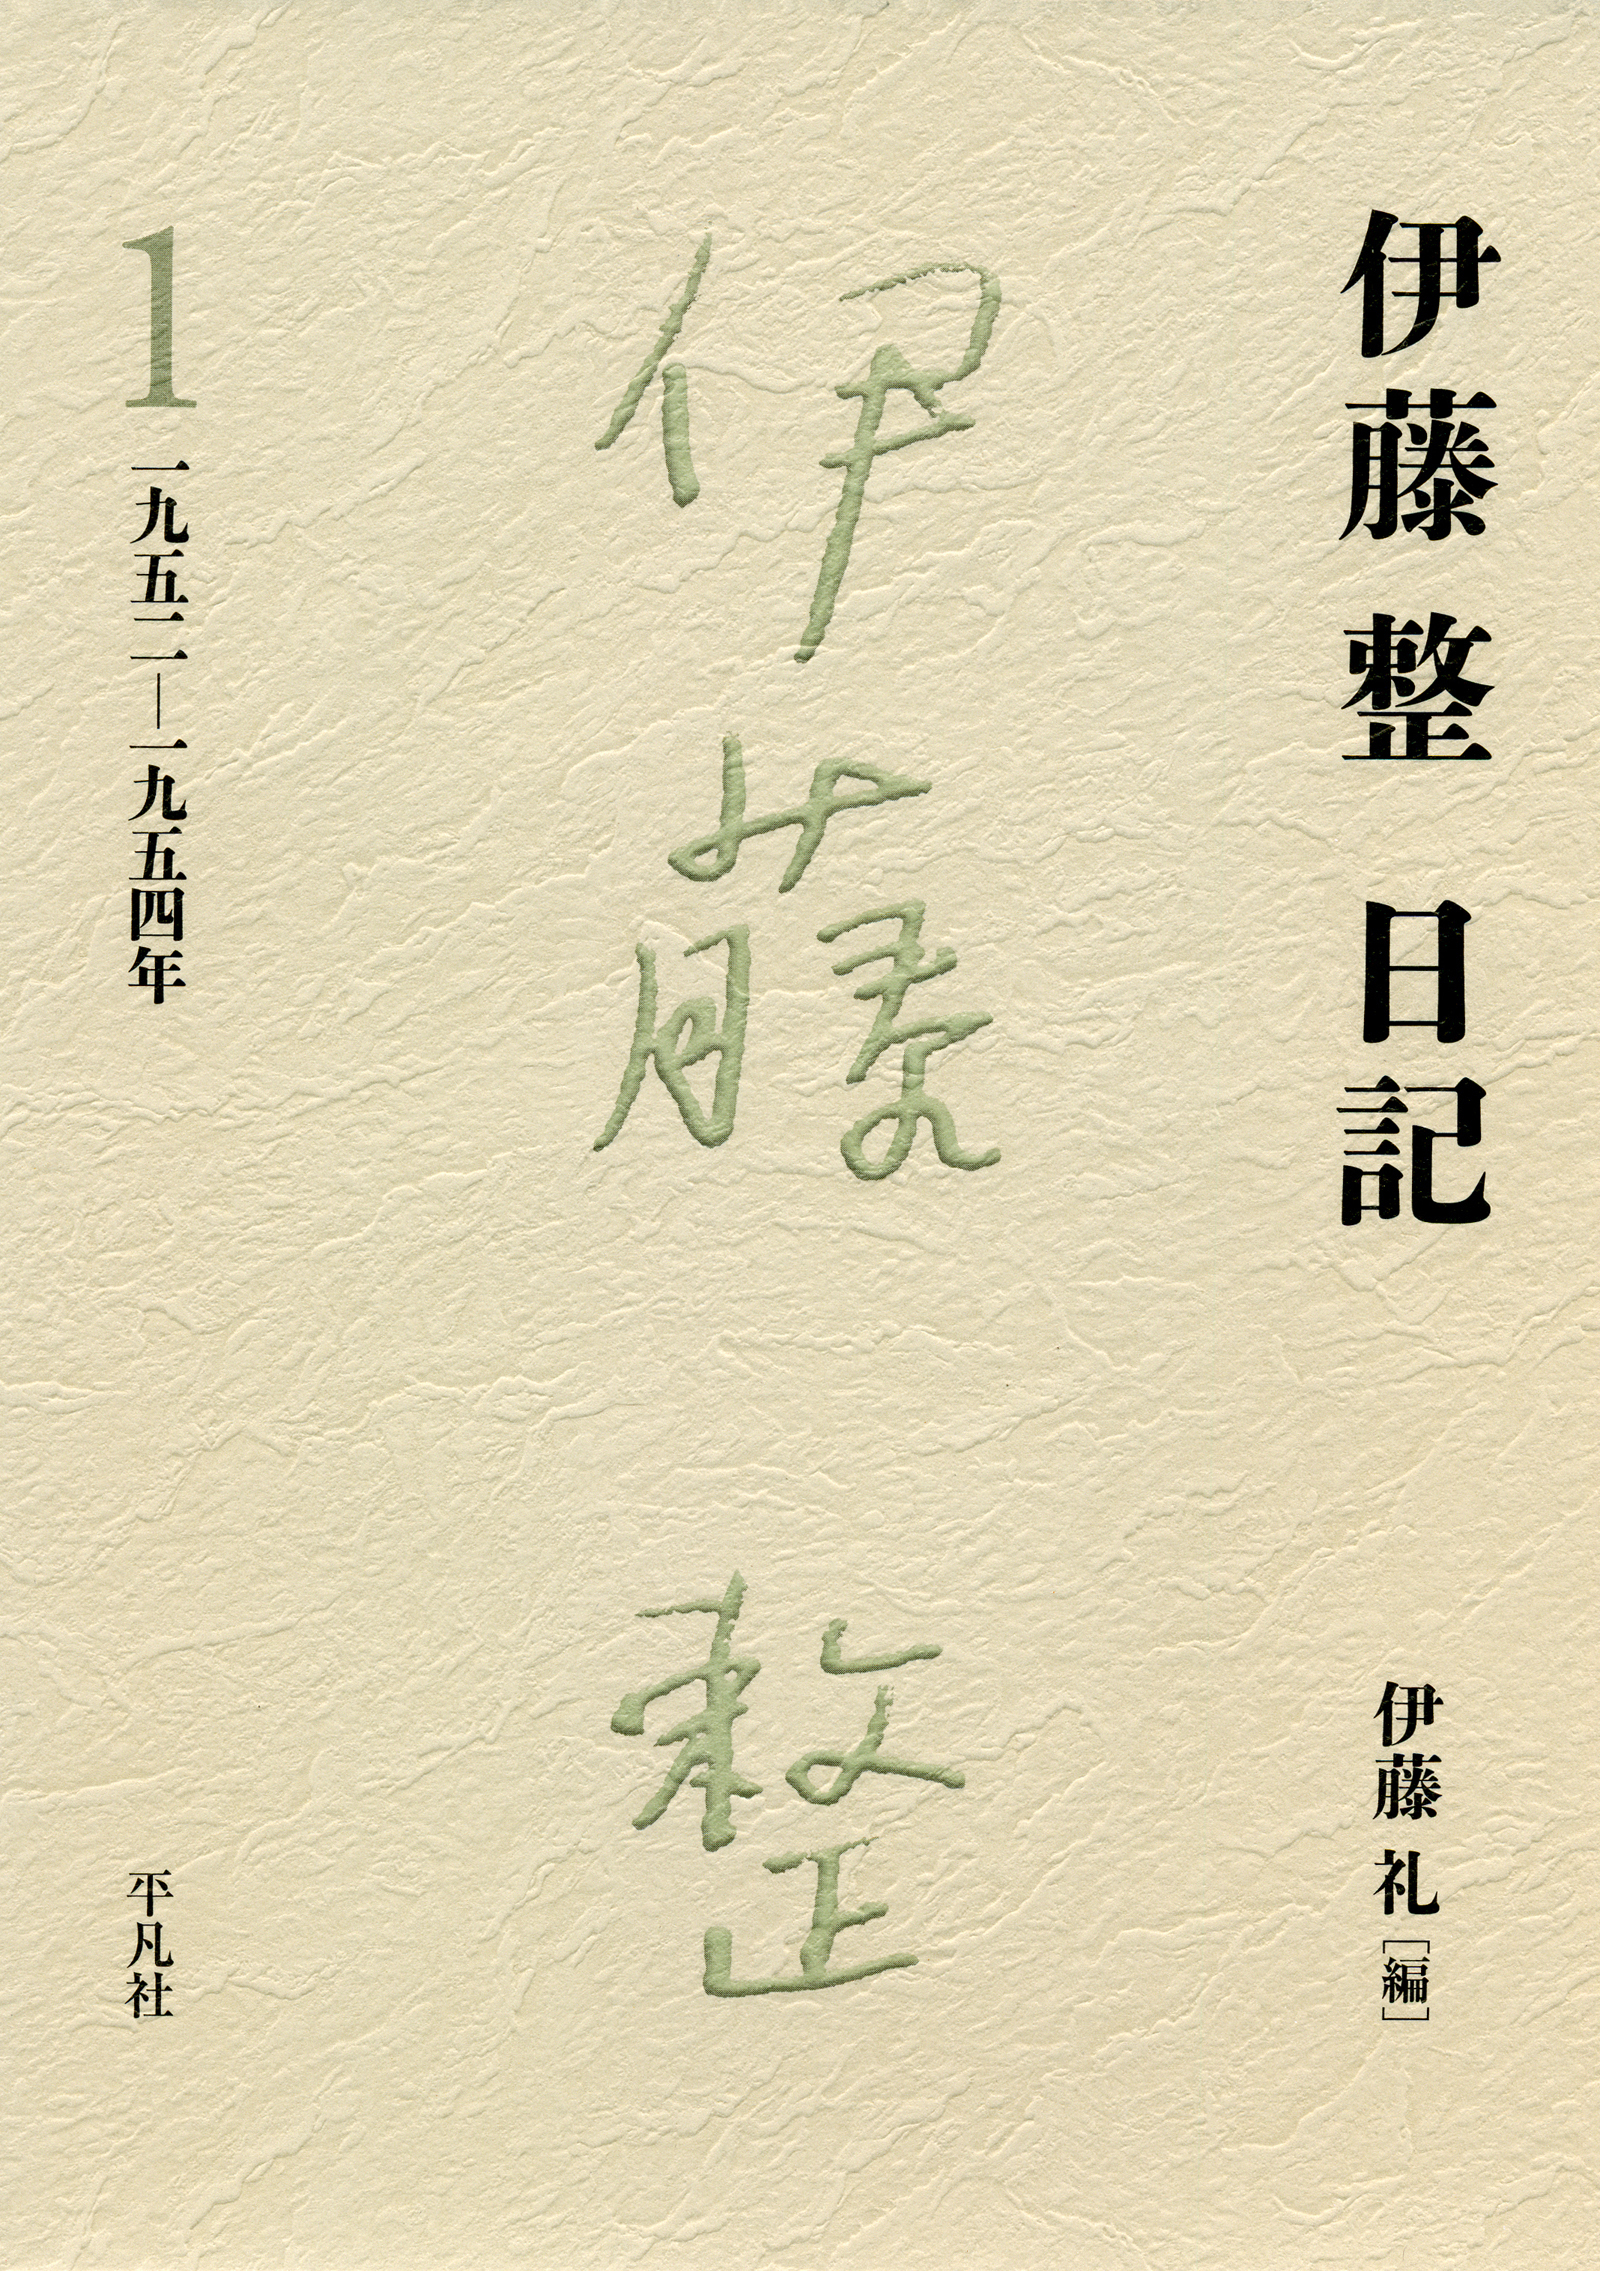 伊藤 整 日記
伊藤 礼［編］
伊藤 整
1
一九五二―一九五四年
平凡社